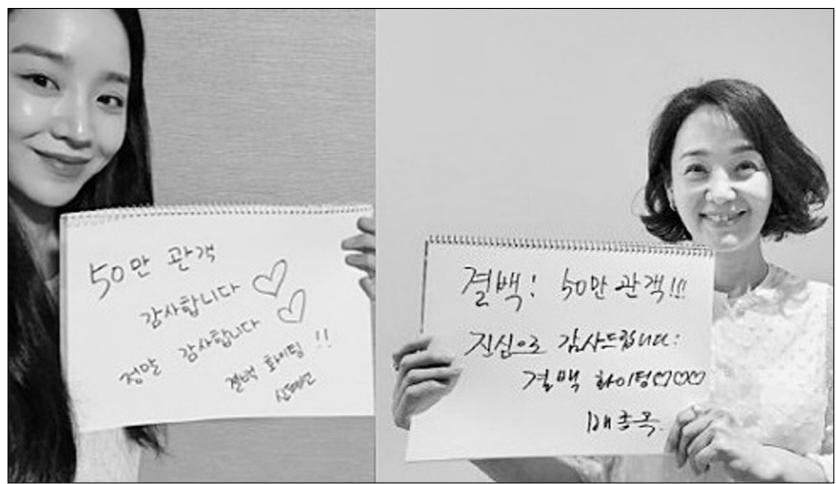 50만 관객
감사합니다 ♡
정말 감사합니다 ♡
결백 화이팅 !!
신혜선
결백! 50만 관객!!!
진심으로 감사드립니다:
결백 화이팅♡♡♡
배종옥.